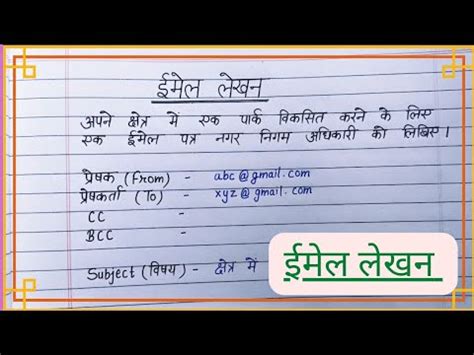 ईमेल लेखन
अपने क्षेत्र में एक पार्क विकसित करने के लिए
एक ईमेल पत्र नगर निगम अधिकारी को लिखिए।
प्रेषक (From) - abc@gmail.com
प्रेषकर्ता (To) - xyz@gmail.com
CC -
BCC -
Subject (विषय) - क्षेत्र में
ईमेल लेखन